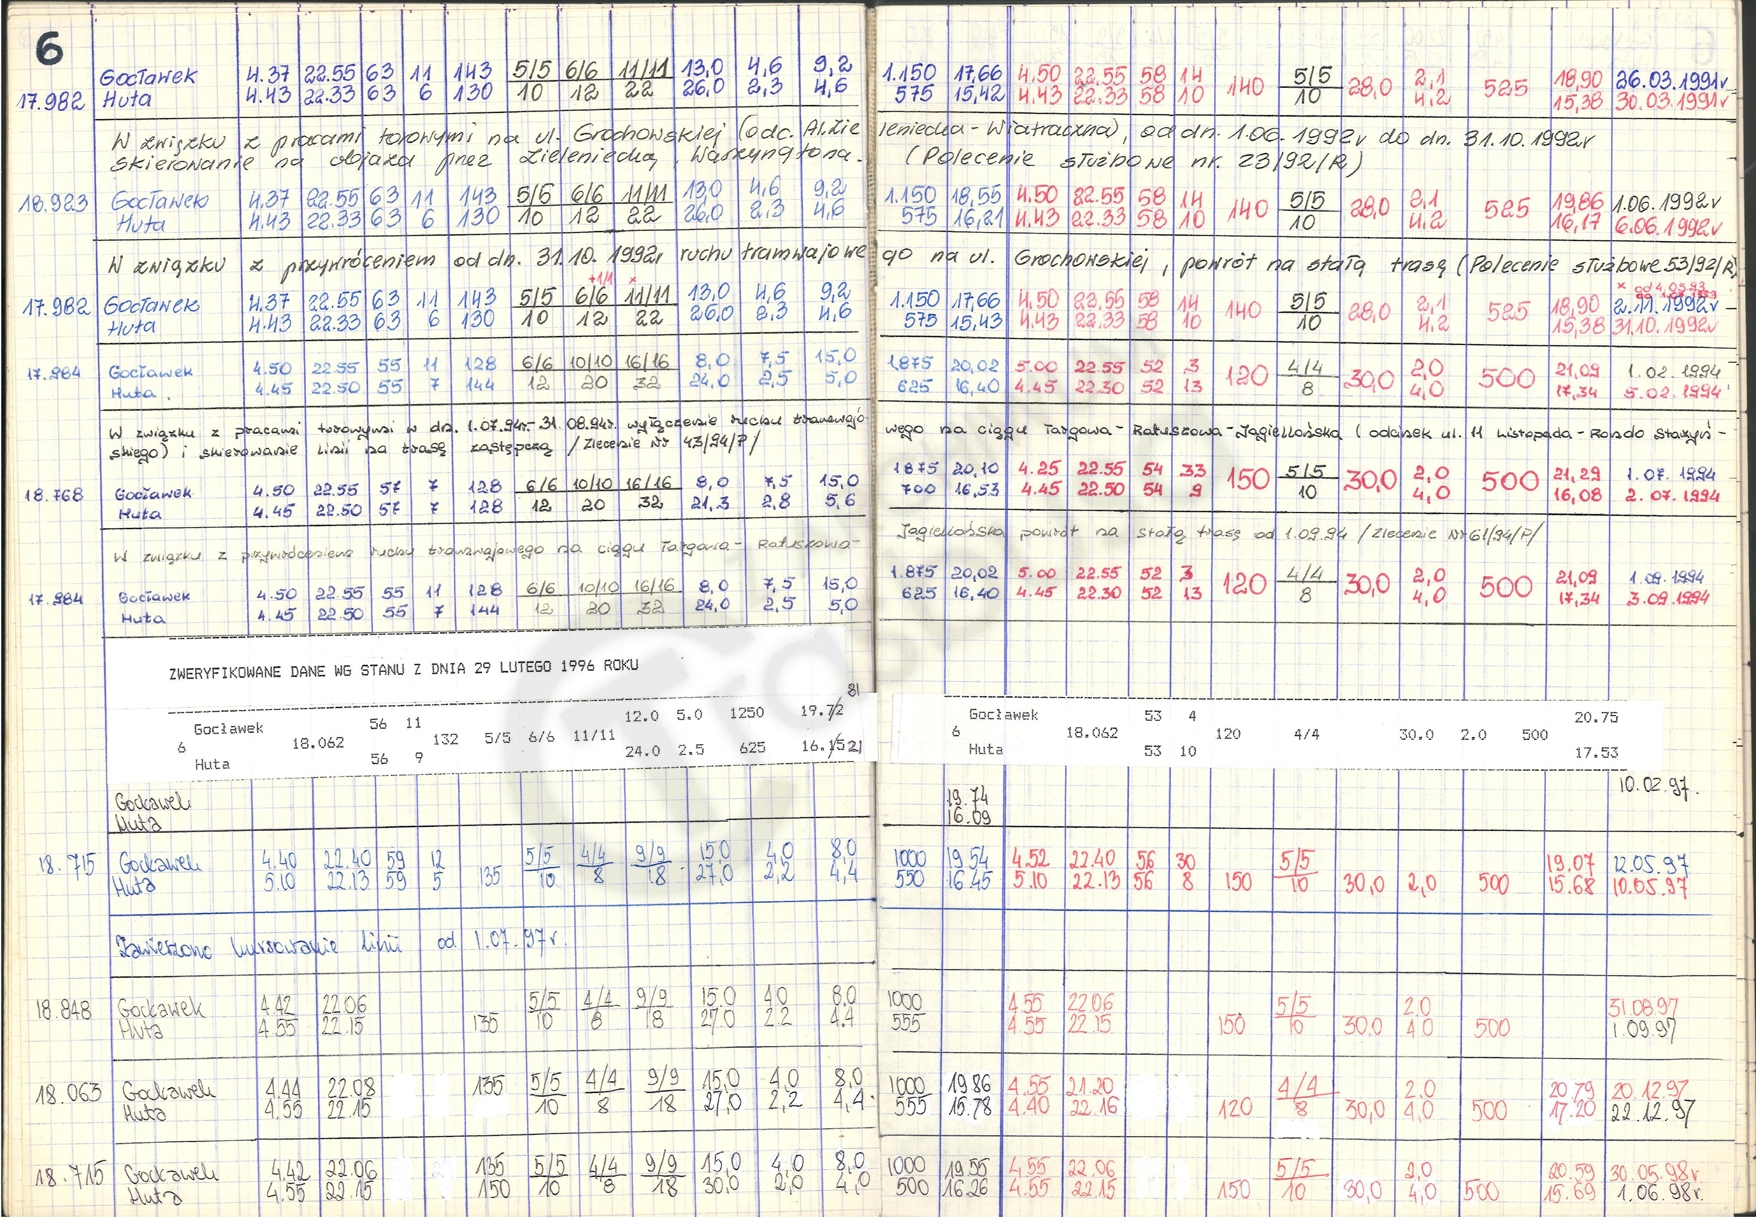 6
Gocławek 4.37 22.55 63 11 143 5/5 6/6 11/11 13,0 4,6 9,2 1.150 17,66 4.50 22.55 58 14 5/5 2,1 18,90 26.03.1991r
17.982 Huta 4.43 22.33 63 6 130 10 12 22 26,0 2,3 4,6 575 15,42 4.43 22.33 58 10 140 10 28,0 4,2 525 15,38 30.03.1991r
W związku z pracami torowymi na ul. Grochowskiej (odc. Al. Zieleniecka - Wiatraczna), od dn. 1.06.1992r do dn. 31.10.1992r
skierowanie na objazd przez Zieleniecką, Waszyngtona. (Polecenie służbowe nr. 23/92/R)
18.923 Gocławek 4.37 22.55 63 11 143 5/5 6/6 11/11 13,0 4,6 9,2 1.150 18,55 4.50 22.55 58 14 5/5 2,1 19,86 1.06.1992r
Huta 4.43 22.33 63 6 130 10 12 22 26,0 2,3 4,6 575 16,21 4.43 22.33 58 10 140 10 28,0 4,2 525 16,17 6.06.1992r
W związku z przywróceniem od dn. 31.10.1992r ruchu tramwajowego na ul. Grochowskiej, powrót na stałą trasę (Polecenie służbowe 53/92/R)
+1/1 x x od 4.05.93
17.982 Gocławek 4.37 22.55 63 11 143 5/5 6/6 11/11 13,0 4,6 9,2 1.150 17,66 4.50 22.55 58 14 5/5 2,1 18,90 2.11.1992r
Huta 4.43 22.33 63 6 130 10 12 22 26,0 2,3 4,6 575 15,43 4.43 22.33 58 10 140 10 28,0 4,2 525 15,38 31.10.1992r
17.984 Gocławek 4.50 22.55 55 11 128 6/6 10/10 16/16 8,0 7,5 15,0 1.875 20,02 5.00 22.55 52 3 4/4 2,0 21,09 1.02.1994
Huta 4.45 22.50 55 7 144 12 20 32 24,0 2,5 5,0 625 16,40 4.45 22.30 52 13 120 8 30,0 4,0 500 17,34 5.02.1994
W związku z pracami torowymi w dn. 1.07.94r.-31.08.94r. wyłączenie ruchu tramwajowego na ciągu Targowa - Ratuszowa - Jagiellońska (odcinek ul. 11 Listopada - Rondo Starzyń-
skiego) i skierowanie linii na trasę zastępczą /Zlecenie Nr 43/94/P/
18.768 Gocławek 4.50 22.55 57 7 128 6/6 10/10 16/16 8,0 7,5 15,0 1875 20,10 4.25 22.55 54 33 5/5 2,0 21,29 1.07.1994
Huta 4.45 22.50 57 7 128 12 20 32 21,3 2,8 5,6 700 16,53 4.45 22.50 54 9 150 10 30,0 4,0 500 16,08 2.07.1994
W związku z przywróceniem ruchu tramwajowego na ciągu Targowa - Ratuszowa - Jagiellońska powrót na stałą trasę od 1.09.94 /Zlecenie Nr 61/94/P/
17.984 Gocławek 4.50 22.55 55 11 128 6/6 10/10 16/16 8,0 7,5 15,0 1.875 20,02 5.00 22.55 52 3 4/4 2,0 21,09 1.09.1994
Huta 4.45 22.50 55 7 144 12 20 32 24,0 2,5 5,0 625 16,40 4.45 22.30 52 13 120 8 30,0 4,0 500 17,34 3.09.1994
ZWERYFIKOWANE DANE WG STANU Z DNIA 29 LUTEGO 1996 ROKU
Gocławek 56 11 12.0 5.0 1250 19.72 81 Gocławek 53 4 20.75
6 18.062 132 5/5 6/6 11/11 6 18.062 120 4/4 30.0 2.0 500
Huta 56 9 24.0 2.5 625 16.15 21 Huta 53 10 17.53
Gocławek 19.74 10.02.97.
Huta 16.09
18.715 Gocławek 4.40 22.40 59 12 5/5 4/4 9/9 15.0 4,0 8,0 1000 19.54 4.52 22.40 56 30 5/5 19.07 12.05.97
Huta 5.10 22.13 59 5 135 10 8 18 27,0 2,2 4,4 550 16.45 5.10 22.13 56 8 150 10 30,0 2,0 500 15.68 10.05.97
Zawieszono kursowanie linii od 1.07.97r.
18.848 Gocławek 4.42 22.06 5/5 4/4 9/9 15.0 4.0 8.0 1000 4.55 22.06 5/5 2.0 31.08.97
Huta 4.55 22.15 135 10 8 18 27.0 2.2 4.4 555 4.55 22.15 150 10 30.0 4.0 500 1.09.97
18.063 Gocławek 4.44 22.08 135 5/5 4/4 9/9 15,0 4,0 8,0 1000 19.86 4.55 21.20 4/4 2.0 20.79 20.12.97
Huta 4.55 22.15 10 8 18 27,0 2,2 4,4 555 15.78 4.40 22.16 120 8 30,0 4,0 500 17.20 22.12.97
18.715 Gocławek 4.42 22.06 135 5/5 4/4 9/9 15,0 4,0 8,0 1000 19.55 4.55 22.06 5/5 2,0 20.59 30.05.98r.
Huta 4.55 22.15 150 10 8 18 30,0 2,0 4,0 500 16.26 4.55 22.15 150 10 30,0 4,0 500 15.69 1.06.98r.